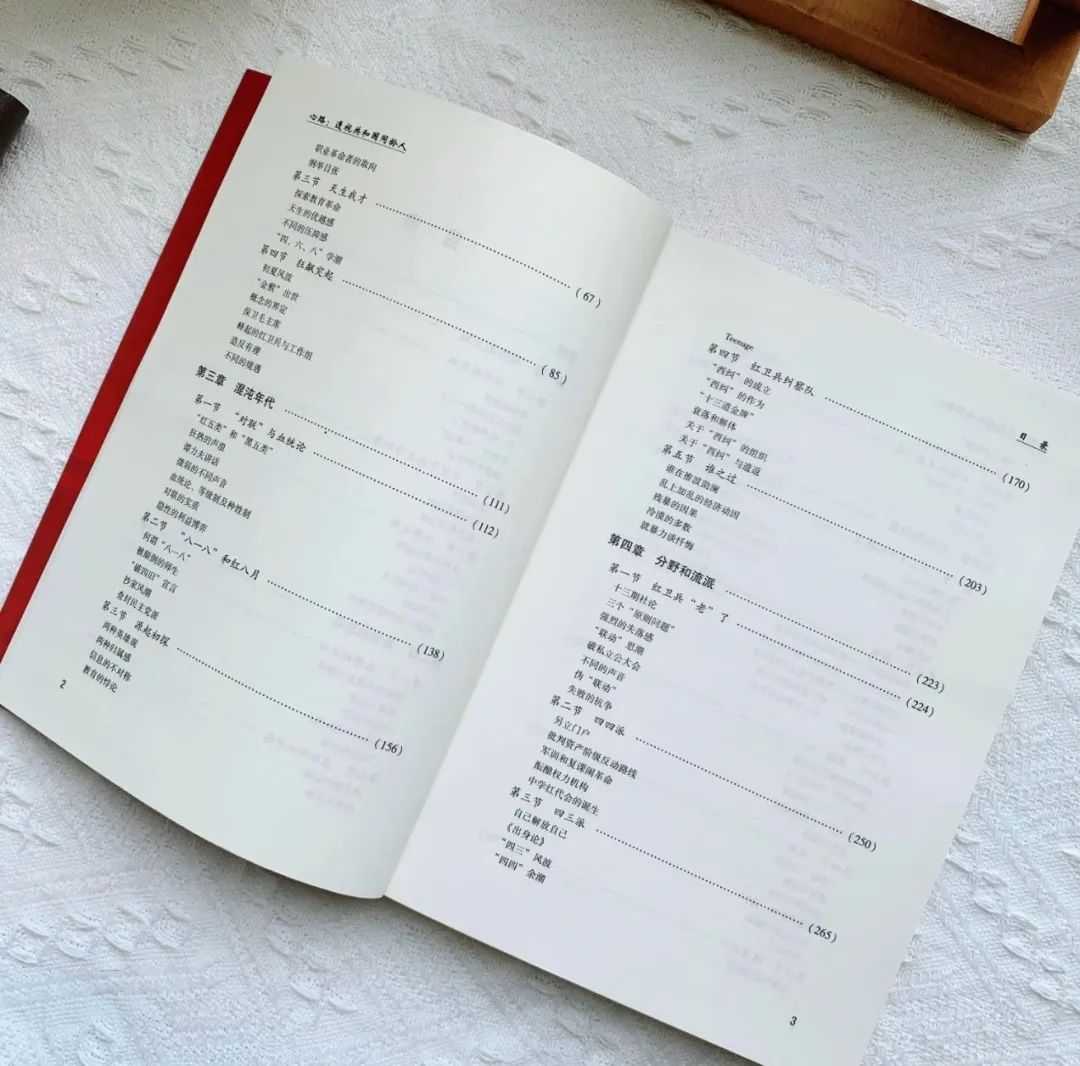 心路：透视共和国同龄人
职业革命者的取向
纲举目张
第三节 天生我才 ……（67）
探索教育革命
天生的优越感
不同的压抑感
“四、六、八”学潮
第四节 狂飙突起 ……（85）
初夏风波
“金猴”出世
概念的界定
保卫毛主席
蜂起的红卫兵与工作组
造反有理
不同的境遇
第三章 混沌年代 ……（111）
第一节 “对联”与血统论 ……（112）
“红五类”和“黑五类”
狂热的声浪
谭力夫讲话
微弱的不同声音
血统论、等级制及种姓制
对联的实质
隐性的利益博弈
第二节 “八一八”和红八月 ……（138）
何谓“八一八”
被颠倒的师生
“破四旧”宣言
抄家风潮
查封民主党派
第三节 源起初探 ……（156）
两种英雄观
两种归属感
信息的不对称
教育的悖论
2
目 录
Teenage
第四节 红卫兵纠察队 ……（170）
“西纠”的成立
“西纠”的作为
“十三道金牌”
衰落和解体
关于“西纠”的组织
关于“西纠”与遣返
第五节 谁之过 ……（203）
谁在推波助澜
乱上加乱的经济动因
残暴的因果
冷漠的多数
就暴力谈忏悔
第四章 分野和流派 ……（223）
第一节 红卫兵“老”了 ……（224）
十三期社论
三个“原则问题”
强烈的失落感
“联动”思潮
破私立公大会
不同的声音
伪“联动”
失败的抗争
第二节 四四派 ……（250）
另立门户
批判资产阶级反动路线
军训和复课闹革命
酝酿权力机构
中学红代会的诞生
第三节 四三派 ……（265）
自己解放自己
《出身论》
“四三”风波
“四四”余潮
3